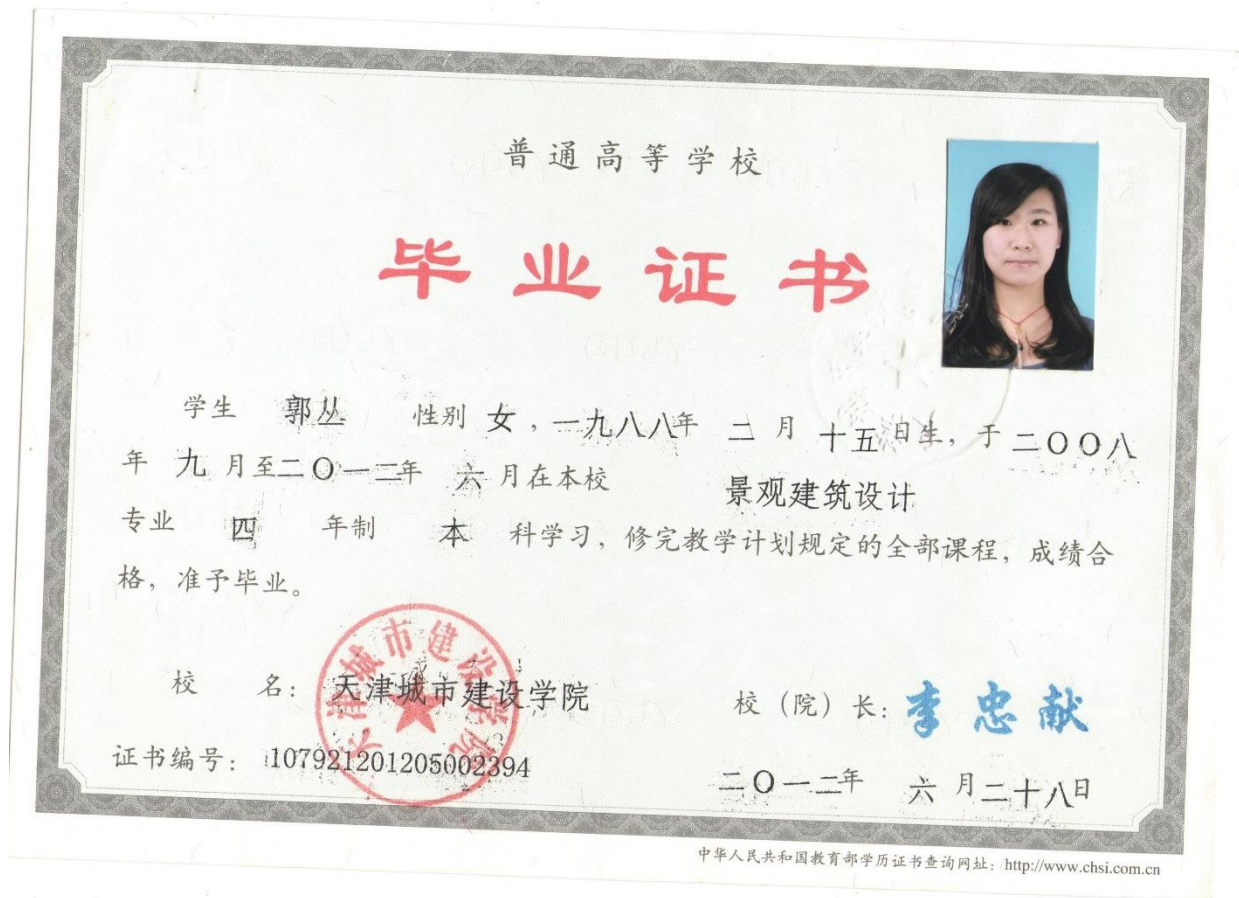 普通高等学校
毕业证书
学生 郭丛 性别 女，一九八八年 二 月 十五 日生，于 二〇〇八
年 九 月至二〇一二年 六 月在本校 景观建筑设计
专业 四 年制 本 科学习，修完教学计划规定的全部课程，成绩合
格，准予毕业。
天津城市建设学院
校 名： 天津城市建设学院
校（院）长：李忠献
证书编号： 107921201205002394
二〇一二年 六 月二十八日
中华人民共和国教育部学历证书查询网址：http://www.chsi.com.cn